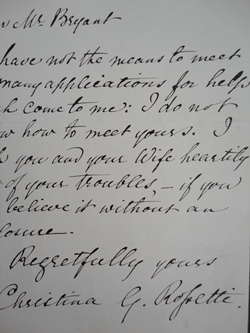 Mr. Bryant
have not the means to meet
many applications for help
come to me: I do not
how to meet yours. I
you and your Wife heartily
of your troubles, – if you
believe it without an
Regretfully yours
Christina G. Rossetti